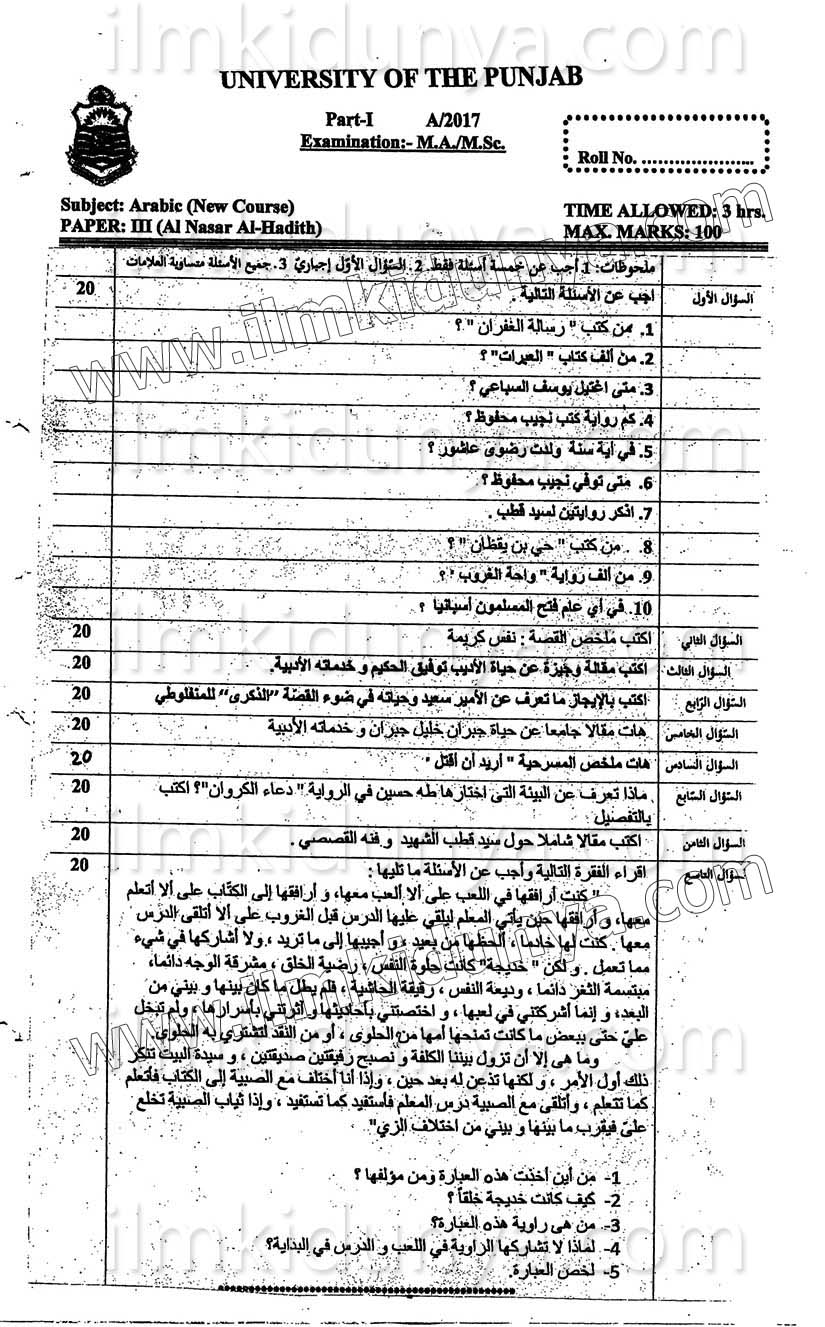 ilmkidunya.com
UNIVERSITY OF THE PUNJAB
Part-I A/2017
Examination:- M.A./M.Sc.
Roll No. ........................
Subject: Arabic (New Course)
TIME ALLOWED: 3 hrs.
PAPER: III (Al Nasar Al-Hadith)
MAX. MARKS: 100
ملحوظات: 1. أجب عن خمسة أسئلة فقط. 2. السّؤال الأوّل إجباريّ 3. جميع الأسئلة متساوية العلامات
السؤال الأول اجب عن الأسئلة التالية . 20
1. من كتب " رسالة الغفران " ؟
2. من ألف كتاب " العبرات" ؟
3. متى اغتيل يوسف السباعي ؟
4. كم رواية كتب نجيب محفوظ ؟
5. في أية سنة ولدت رضوى عاشور ؟
6. متى توفي نجيب محفوظ ؟
7. اذكر روايتين لسيد قطب .
8. من كتب " حي بن يقظان " ؟
9. من ألف رواية " واحة الغروب " ؟
10. في أي عام فتح المسلمون أسبانيا ؟
السؤال الثاني اكتب ملخص القصة : نفس كريمة 20
السؤال الثالث اكتب مقالة وجيزة عن حياة الأديب توفيق الحكيم و خدماته الأدبية. 20
السّؤال الرّابع اكتب بالإيجاز ما تعرف عن الأمير سعيد وحياته في ضوء القصّة "الذكرى" للمنفلوطي 20
السّؤال الخامس هات مقالا جامعا عن حياة جبران خليل جبران و خدماته الأدبية 20
السّؤال السادس هات ملخص المسرحية " أريد أن أقتل " 20
السّؤال السّابع ماذا تعرف عن البيئة التى اختارها طه حسين في الرواية " دعاء الكروان"؟ اكتب 20
بالتفصيل
السؤال الثامن اكتب مقالا شاملا حول سيد قطب الشهيد و فنه القصصي . 20
السؤال التاسع اقراء الفقرة التالية وأجب عن الأسئلة ما تليها : 20
" كنت أرافقها في اللعب على ألا ألعب معها، و أرافقها إلى الكتّاب على ألا أتعلم
معها، و أرافقها حين يأتي المعلم ليلقي عليها الدرس قبل الغروب على ألا أتلقى الدرس
معها . كنت لها خادما ، ألحظها من بعيد ، و أجيبها إلى ما تريد ، ولا أشاركها في شيء
مما تعمل . و لكن " خديجة" كانت حلوة النفس ، رضية الخلق ، مشرقة الوجه دائما،
مبتسمة الثغر دائما ، وديعة النفس ، رقيقة الحاشية ، فلم يطل ما كان بينها و بيني من
البعد، و إنما أشركتني في لعبها ، و اختصتني بأحاديثها و آثرتني بأسرارها ، ولم تبخل
عليّ حتى ببعض ما كانت تمنحها أمها من الحلوى ، أو من النقد لتشتري به الحلوى.
وما هى إلا أن تزول بيننا الكلفة و نصبح رفيقتين صديقتين ، و سيدة البيت تنكر
ذلك أول الأمر ، و لكنها تذعن له بعد حين ، وإذا أنا أختلف مع الصبية إلى الكتاب فأتعلم
كما تتعلم ، وأتلقى مع الصبية درس المعلم فأستفيد كما تستفيد ، وإذا ثياب الصبية تخلع
عليّ فيقرب ما بينها و بيني من اختلاف الزي"
1- من أين أخذت هذه العبارة ومن مؤلفها ؟
2- كيف كانت خديجة خلقاً ؟
3- من هى راوية هذه العبارة؟
4- لماذا لا تشاركها الراوية في اللعب و الدرس في البداية؟
5- لخص العبارة.
ilmkidunya.com
ilmkidunya.com
ilmkidunya.com
ilmkidunya.com
www.ilmkidunya.com
www.ilmkidunya.com